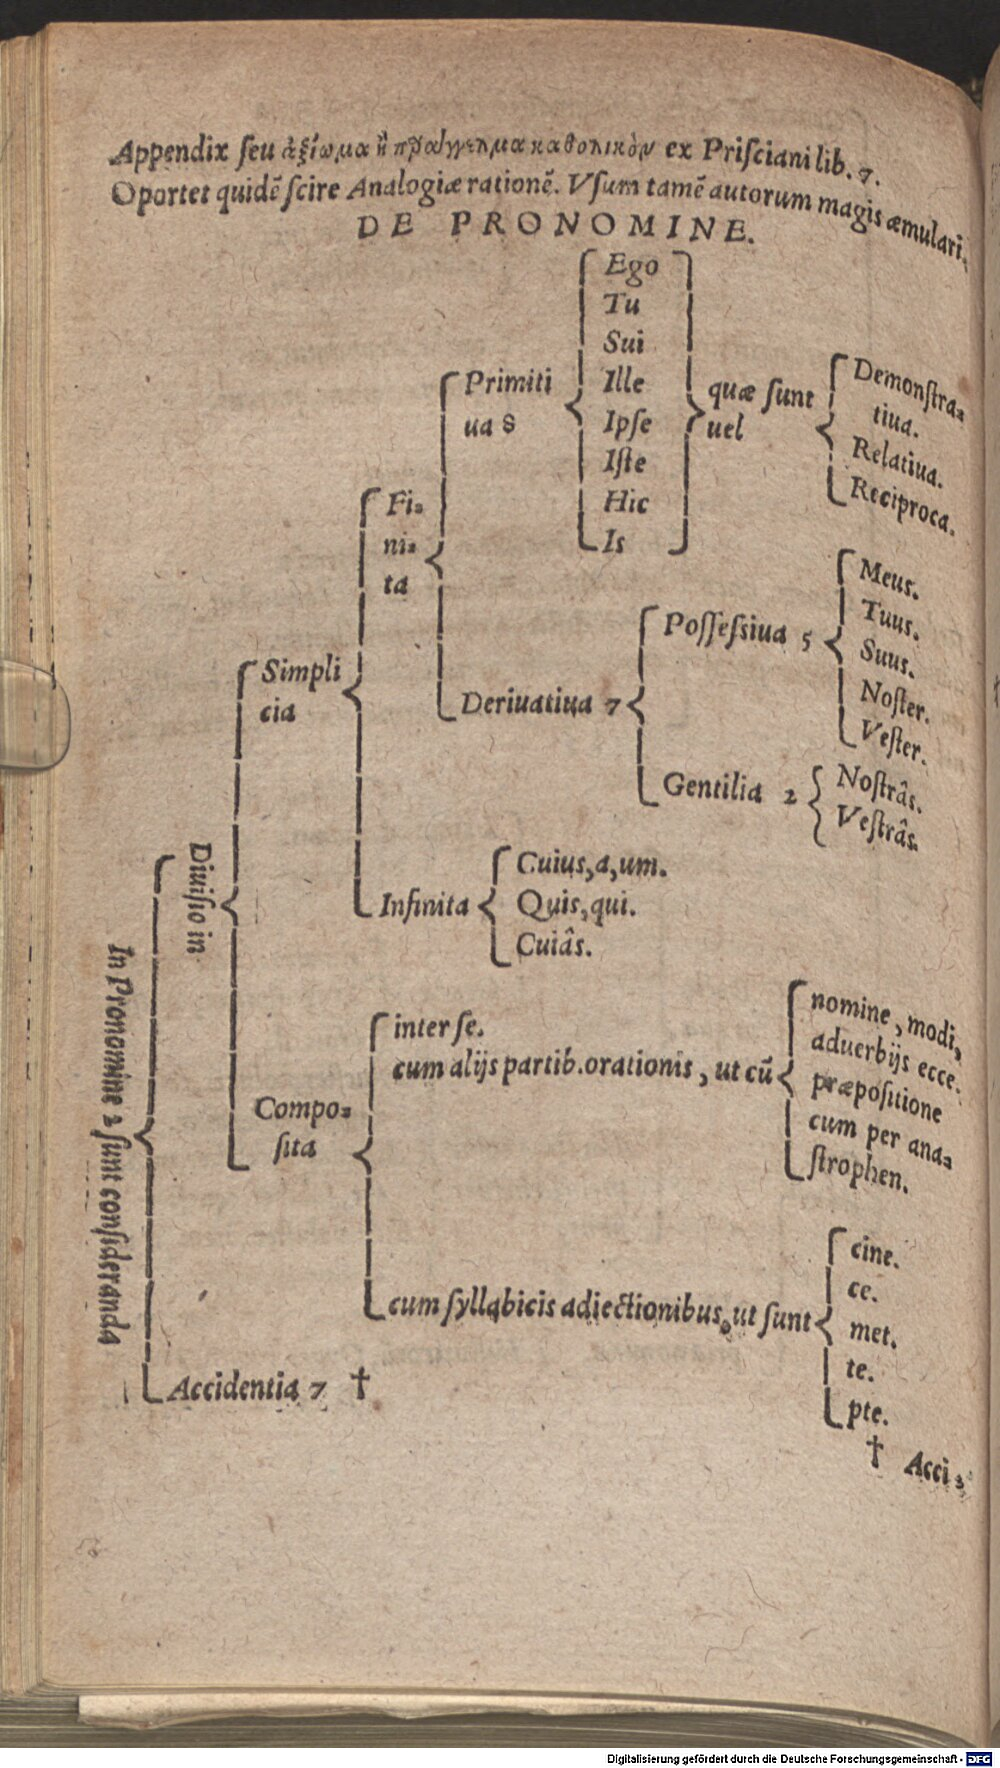 Appendix ſeu ἀξίωμα ἢ πρᾶγγελμα καθολικὸν ex Priſciani lib. 7.
Oportet quidē ſcire Analogiæ rationē. Vſum tamē autorum magis æmulari.
DE PRONOMINE.
In Pronomine 2 ſunt conſideranda
Diuiſio in
Simpli
cia
Fi⸗
ni⸗
ta
Primiti
ua 8
Ego
Tu
Sui
Ille
Ipſe
Iſte
Hic
Is
quæ ſunt
uel
Demonſtra⸗
tiua.
Relatiua.
Reciproca.
Deriuatiua 7
Poſſeſsiua 5
Meus.
Tuus.
Suus.
Noſter.
Veſter.
Gentilia 2
Noſtrâs.
Veſtrâs.
Infinita
Cuius, a, um.
Quis, qui.
Cuiâs.
Compo⸗
ſita
inter ſe.
cum alijs partib. orationis, ut cū
nomine, modi,
aduerbijs ecce.
præpoſitione
cum per ana⸗
ſtrophen.
cum ſyllabicis adiectionibus, ut ſunt
cine.
ce.
met.
te.
pte.
Accidentia 7 †
† Acci⸗
Digitalisierung gefördert durch die Deutsche Forschungsgemeinschaft - DFG